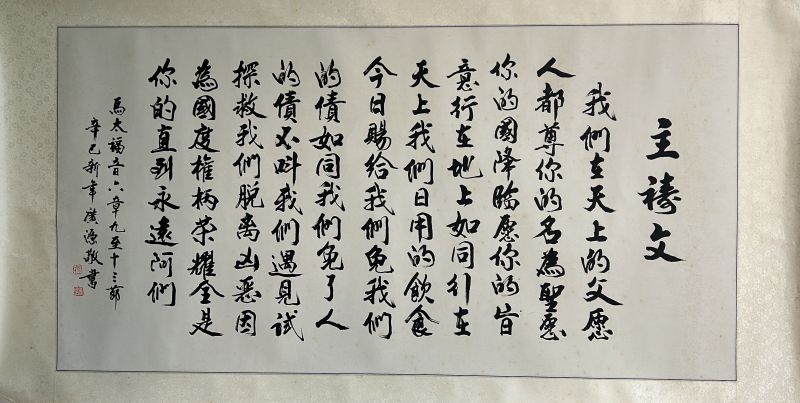 主禱文
我們在天上的父愿
人都尊你的名為聖愿
你的國降臨愿你的旨
意行在地上如同行在
天上我們日用的飲食
今日賜給我們免我們
的債如同我們免了人
的債不叫我們遇見試
探救我們脫離凶惡因
為國度權柄榮耀全是
你的直到永遠阿們
馬太福音六章九至十三節
辛巳新年廣源敬書